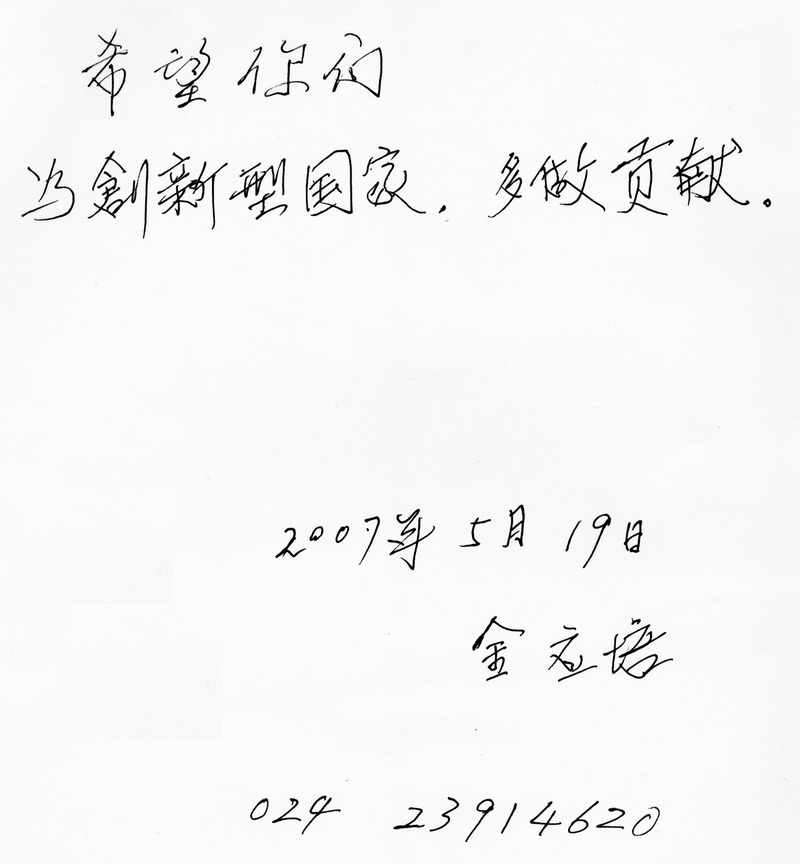 希望你们
为創新型国家，多做贡献。
2007年 5月 19日
金应培
024 23914620